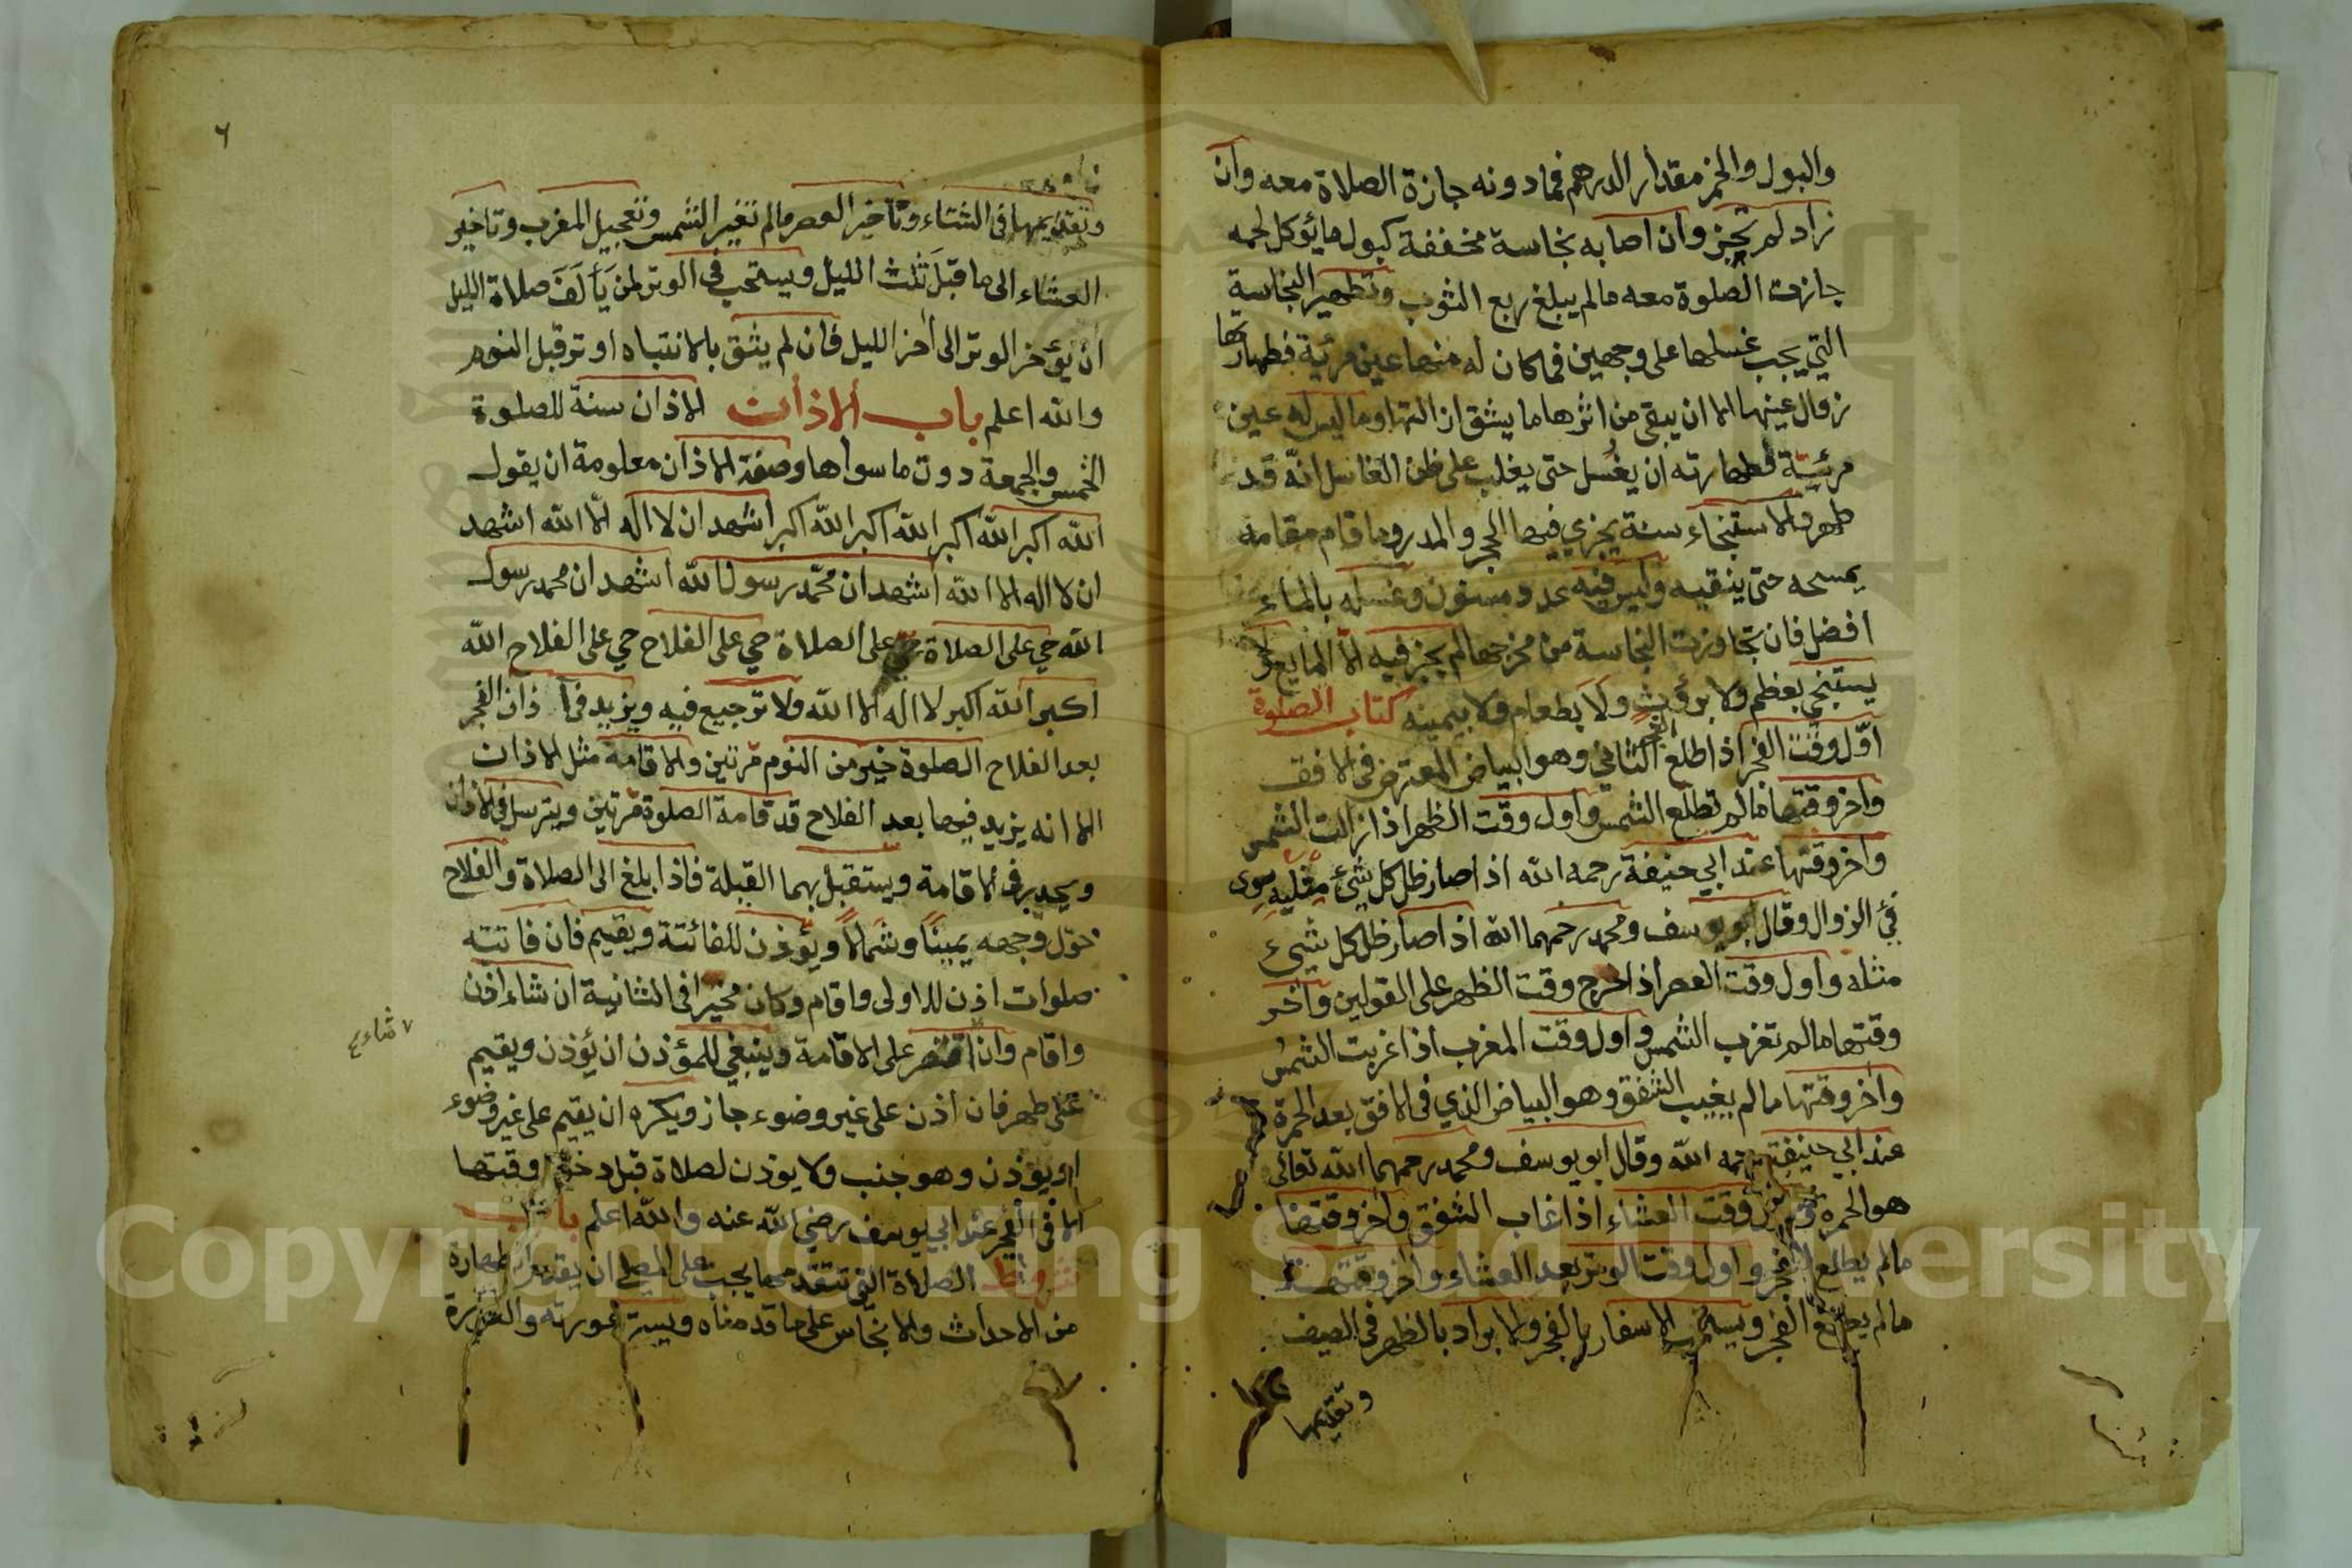 والبول والخمر مقدار الدرهم فما دونه جازة الصلاة معه وان
زاد لم تجز وان اصابه نجاسة مخففة كبول ما يؤكل لحمه
جازت الصلوة معه مالم يبلغ ربع الثوب وتطهير النجاسة
التي يجب غسلها على وجهين فما كان له منها عين مرئية فطهارتها
زوال عينها الا ان يبقى من اثرها ما يشق ازالتها وما ليس له عين
مرئية فطهارته ان يغسل حتى يغلب على ظن الغاسل انه قد
طهر والاستنجاء سنة يجزي فيها الحجر والمدر وما قام مقامه
يمسحه حتى ينقيه وليس فيه عدد مسنون وغسله بالماء
افضل فان تجاوزت النجاسة من مخرجها لم يجز فيه الا المايع ولا
يستنجي بعظم ولا بروث ولا بطعام ولا بيمينه كتاب الصلوة
اول وقت الفجر اذا طلع الفجر الثاني وهو البياض المعترض في الافق
واخر وقتها مالم تطلع الشمس واول وقت الظهر اذا زالت الشمس
واخر وقتها عند ابي حنيفة رحمه الله اذا صار ظل كل شئ مثليه سوى
فئ الزوال وقال ابو يوسف ومحمد رحمهما الله اذا صار ظل كل شئ
مثله واول وقت العصر اذا خرج وقت الظهر على القولين واخر
وقتها مالم تغرب الشمس واول وقت المغرب اذا غربت الشمس
واخر وقتها مالم يغيب الشفق وهو البياض الذي في الافق بعد الحمرة
عند ابي حنيفة رحمه الله وقال ابو يوسف ومحمد رحمهما الله تعالى
هو الحمره واول وقت العشاء اذا غاب الشفق واخر وقتها
مالم يطلع الفجر واول وقت الوتر بعد العشاء واخر وقتها
مالم يطلع الفجر ويستحب الاسفار بالفجر والابراد بالظهر في الصيف
وتقديمها
٦
وتقديمها في الشتاء وتاخير العصر مالم تتغير الشمس وتعجيل المغرب وتاخير
العشاء الى ما قبل ثلث الليل ويستحب في الوتر لمن يألف صلاة الليل
ان يؤخر الوتر الى اخر الليل فان لم يثق بالانتباه اوتر قبل النوم
والله اعلم باب الاذان الاذان سنة للصلوة
الخمس والجمعة دون ما سواها وصفة الاذان معلومة ان يقول
الله اكبر الله اكبر الله اكبر الله اكبر اشهد ان لا اله الا الله اشهد
ان لا اله الا الله اشهد ان محمد رسول الله اشهد ان محمد رسول
الله حي على الصلاة حي على الصلاة حي على الفلاح حي على الفلاح الله
اكبر الله اكبر لا اله الا الله ولا ترجيع فيه ويزيد في اذان الفجر
بعد الفلاح الصلوة خير من النوم مرتين والاقامة مثل الاذان
الا انه يزيد فيها بعد الفلاح قد قامة الصلوة مرتين ويترسل في الاذان
ويحدر في الاقامة ويستقبل بهما القبلة فاذا بلغ الى الصلاة والفلاح
حول وجهه يمينًا وشمالاً ويؤذن للفائتة ويقيم فان فاتته
صلوات اذن للاولى واقام وكان مخيرا في الثانية ان شاء اذن
واقام وان اقتصر على الاقامة وينبغي للمؤذن ان يؤذن ويقيم
شاء
على طهر فان اذن على غير وضوء جاز ويكره ان يقيم على غير وضوء
او يؤذن وهو جنب ولا يوذن لصلاة قبل دخول وقتها
الا في الفجر عند ابي يوسف رضي الله عنه والله اعلم باب
شروط الصلاة التي تتقدمها يجب على المصلي ان يقدم الطهارة
من الاحداث والانجاس على ما قدمناه ويستر عورته والعورة
Copyright © King Saud University